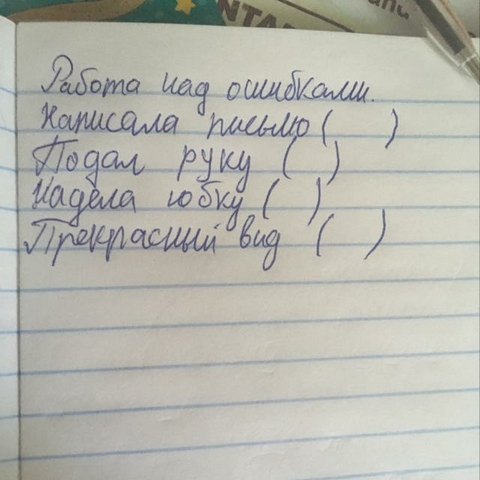 Работа над ошибками.
Написала письмо ( )
Подал руку ( )
Надела юбку ( )
Прекрасный вид ( )